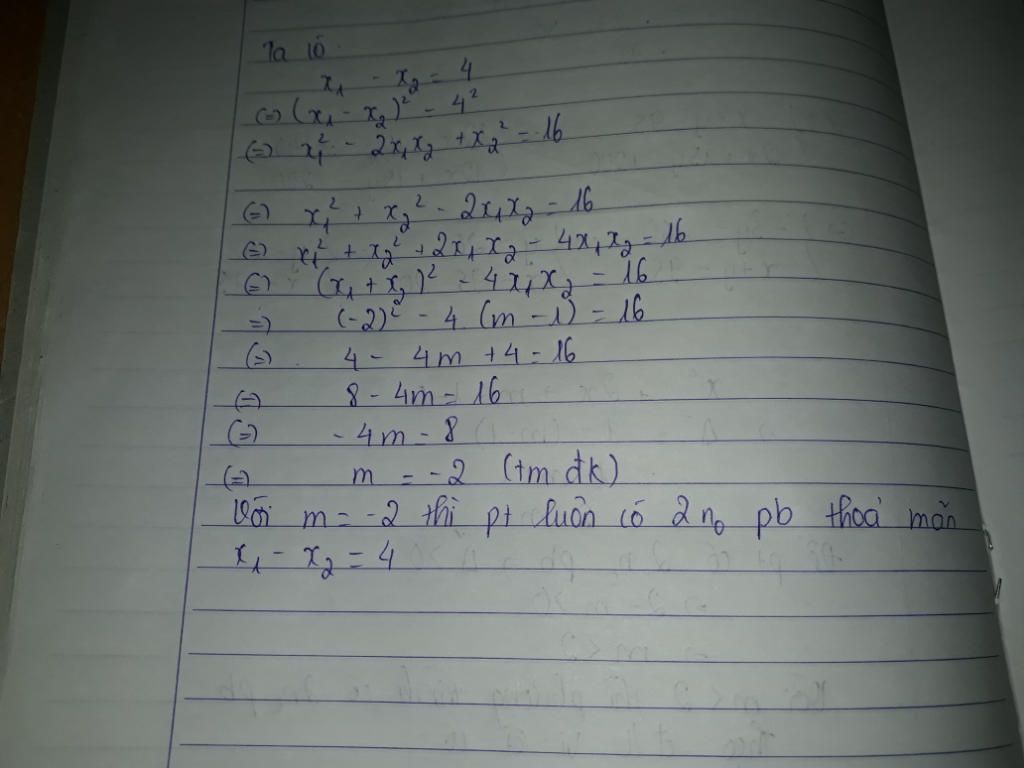 Ta có
x₁ - x₂ = 4
(=) (x₁ - x₂)² = 4²
(=) x₁² - 2x₁x₂ + x₂² = 16
(=) x₁² + x₂² - 2x₁x₂ = 16
(=) x₁² + x₂² + 2x₁x₂ - 4x₁x₂ = 16
(=) (x₁ + x₂)² - 4x₁x₂ = 16
=) (-2)² - 4 (m - 1) = 16
(=) 4 - 4m + 4 = 16
(=) 8 - 4m = 16
(=) - 4m = 8
(=) m = -2 (tm đk)
Với m = -2 thì pt luôn có 2 n₀ pb thoả mãn
x₁ - x₂ = 4